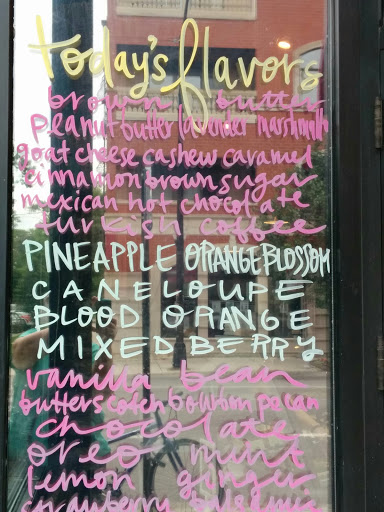 today's flavors
brown butter
peanut butter lavender marshmallo
goat cheese cashew caramel
cinnamon brown sugar
mexican hot chocolate
turkish coffee
PINEAPPLE ORANGE BLOSSOM
CANELOUPE
BLOOD ORANGE
MIXED BERRY
vanilla bean
butterscotch bourbon pecan
chocolate
oreo mint
lemon ginger
strawberry balsamic